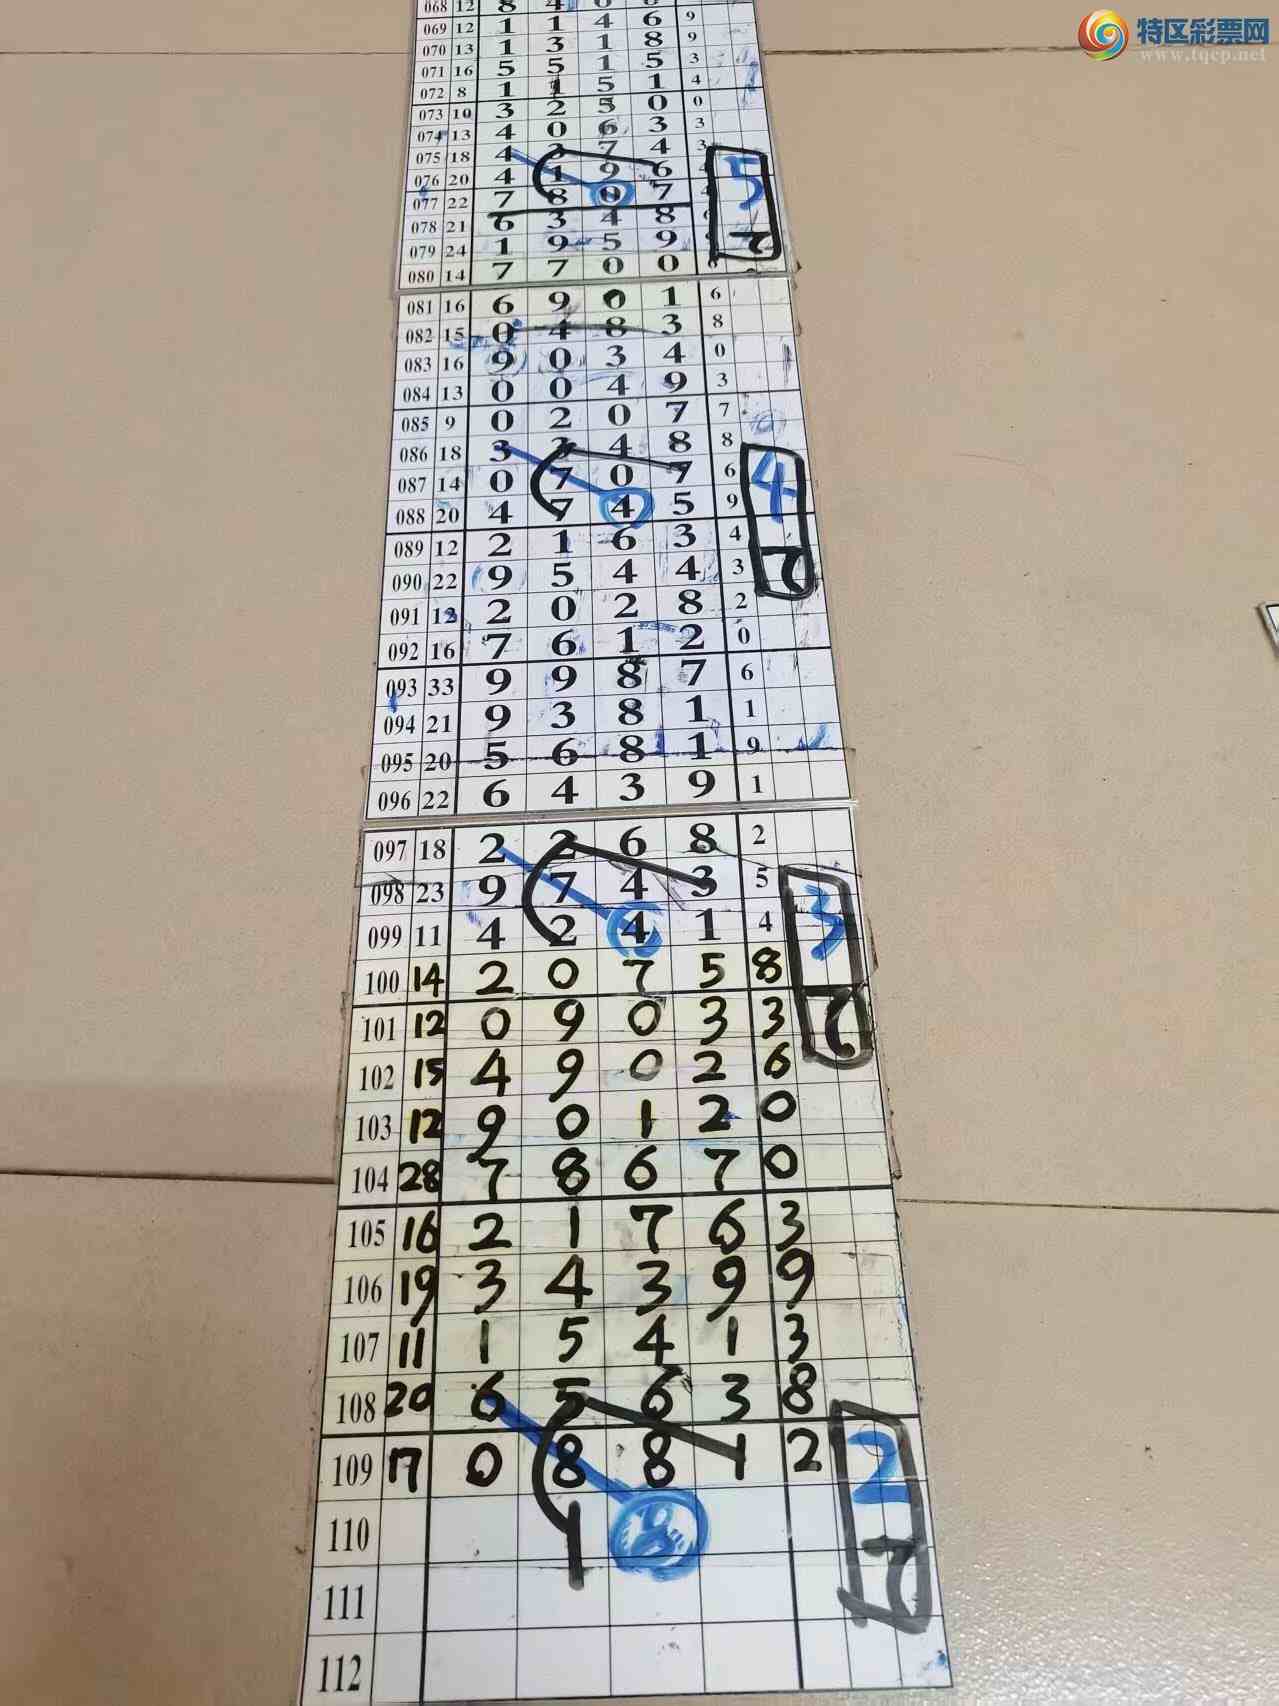 特区彩票网
www.tqcp.net
068 12 8 4
069 12 1 1 4 6 9
070 13 1 3 1 8 9
071 16 5 5 1 5 3
072 8 1 1 5 1 4
073 10 3 2 5 0 0
074 13 4 0 6 3 3
075 18 4 3 7 4 3
076 20 4 1 9 6
077 22 7 8 0 7
5
078 21 6 3 4 8
079 24 1 9 5 9
080 14 7 7 0 0
081 16 6 9 0 1 6
082 15 0 4 8 3 8
083 16 9 0 3 4 0
084 13 0 0 4 9 3
085 9 0 2 0 7 7
086 18 3 3 4 8 8
087 14 0 7 0 7 6
4
088 20 4 7 4 5 9
089 12 2 1 6 3 4
090 22 9 5 4 4 3
091 12 2 0 2 8 2
092 16 7 6 1 2 0
093 33 9 9 8 7 6
094 21 9 3 8 1 1
095 20 5 6 8 1 9
096 22 6 4 3 9 1
097 18 2 2 6 8 2
098 23 9 7 4 3 5
3
099 11 4 2 4 1 4
100 14 2 0 7 5 8
101 12 0 9 0 3 3
102 15 4 9 0 2 6
103 12 9 0 1 2 0
104 28 7 8 6 7 0
105 16 2 1 7 6 3
106 19 3 4 3 9 9
107 11 1 5 4 1 3
108 20 6 5 6 3 8
109 17 0 8 8 1 2
2
110 1
111
112